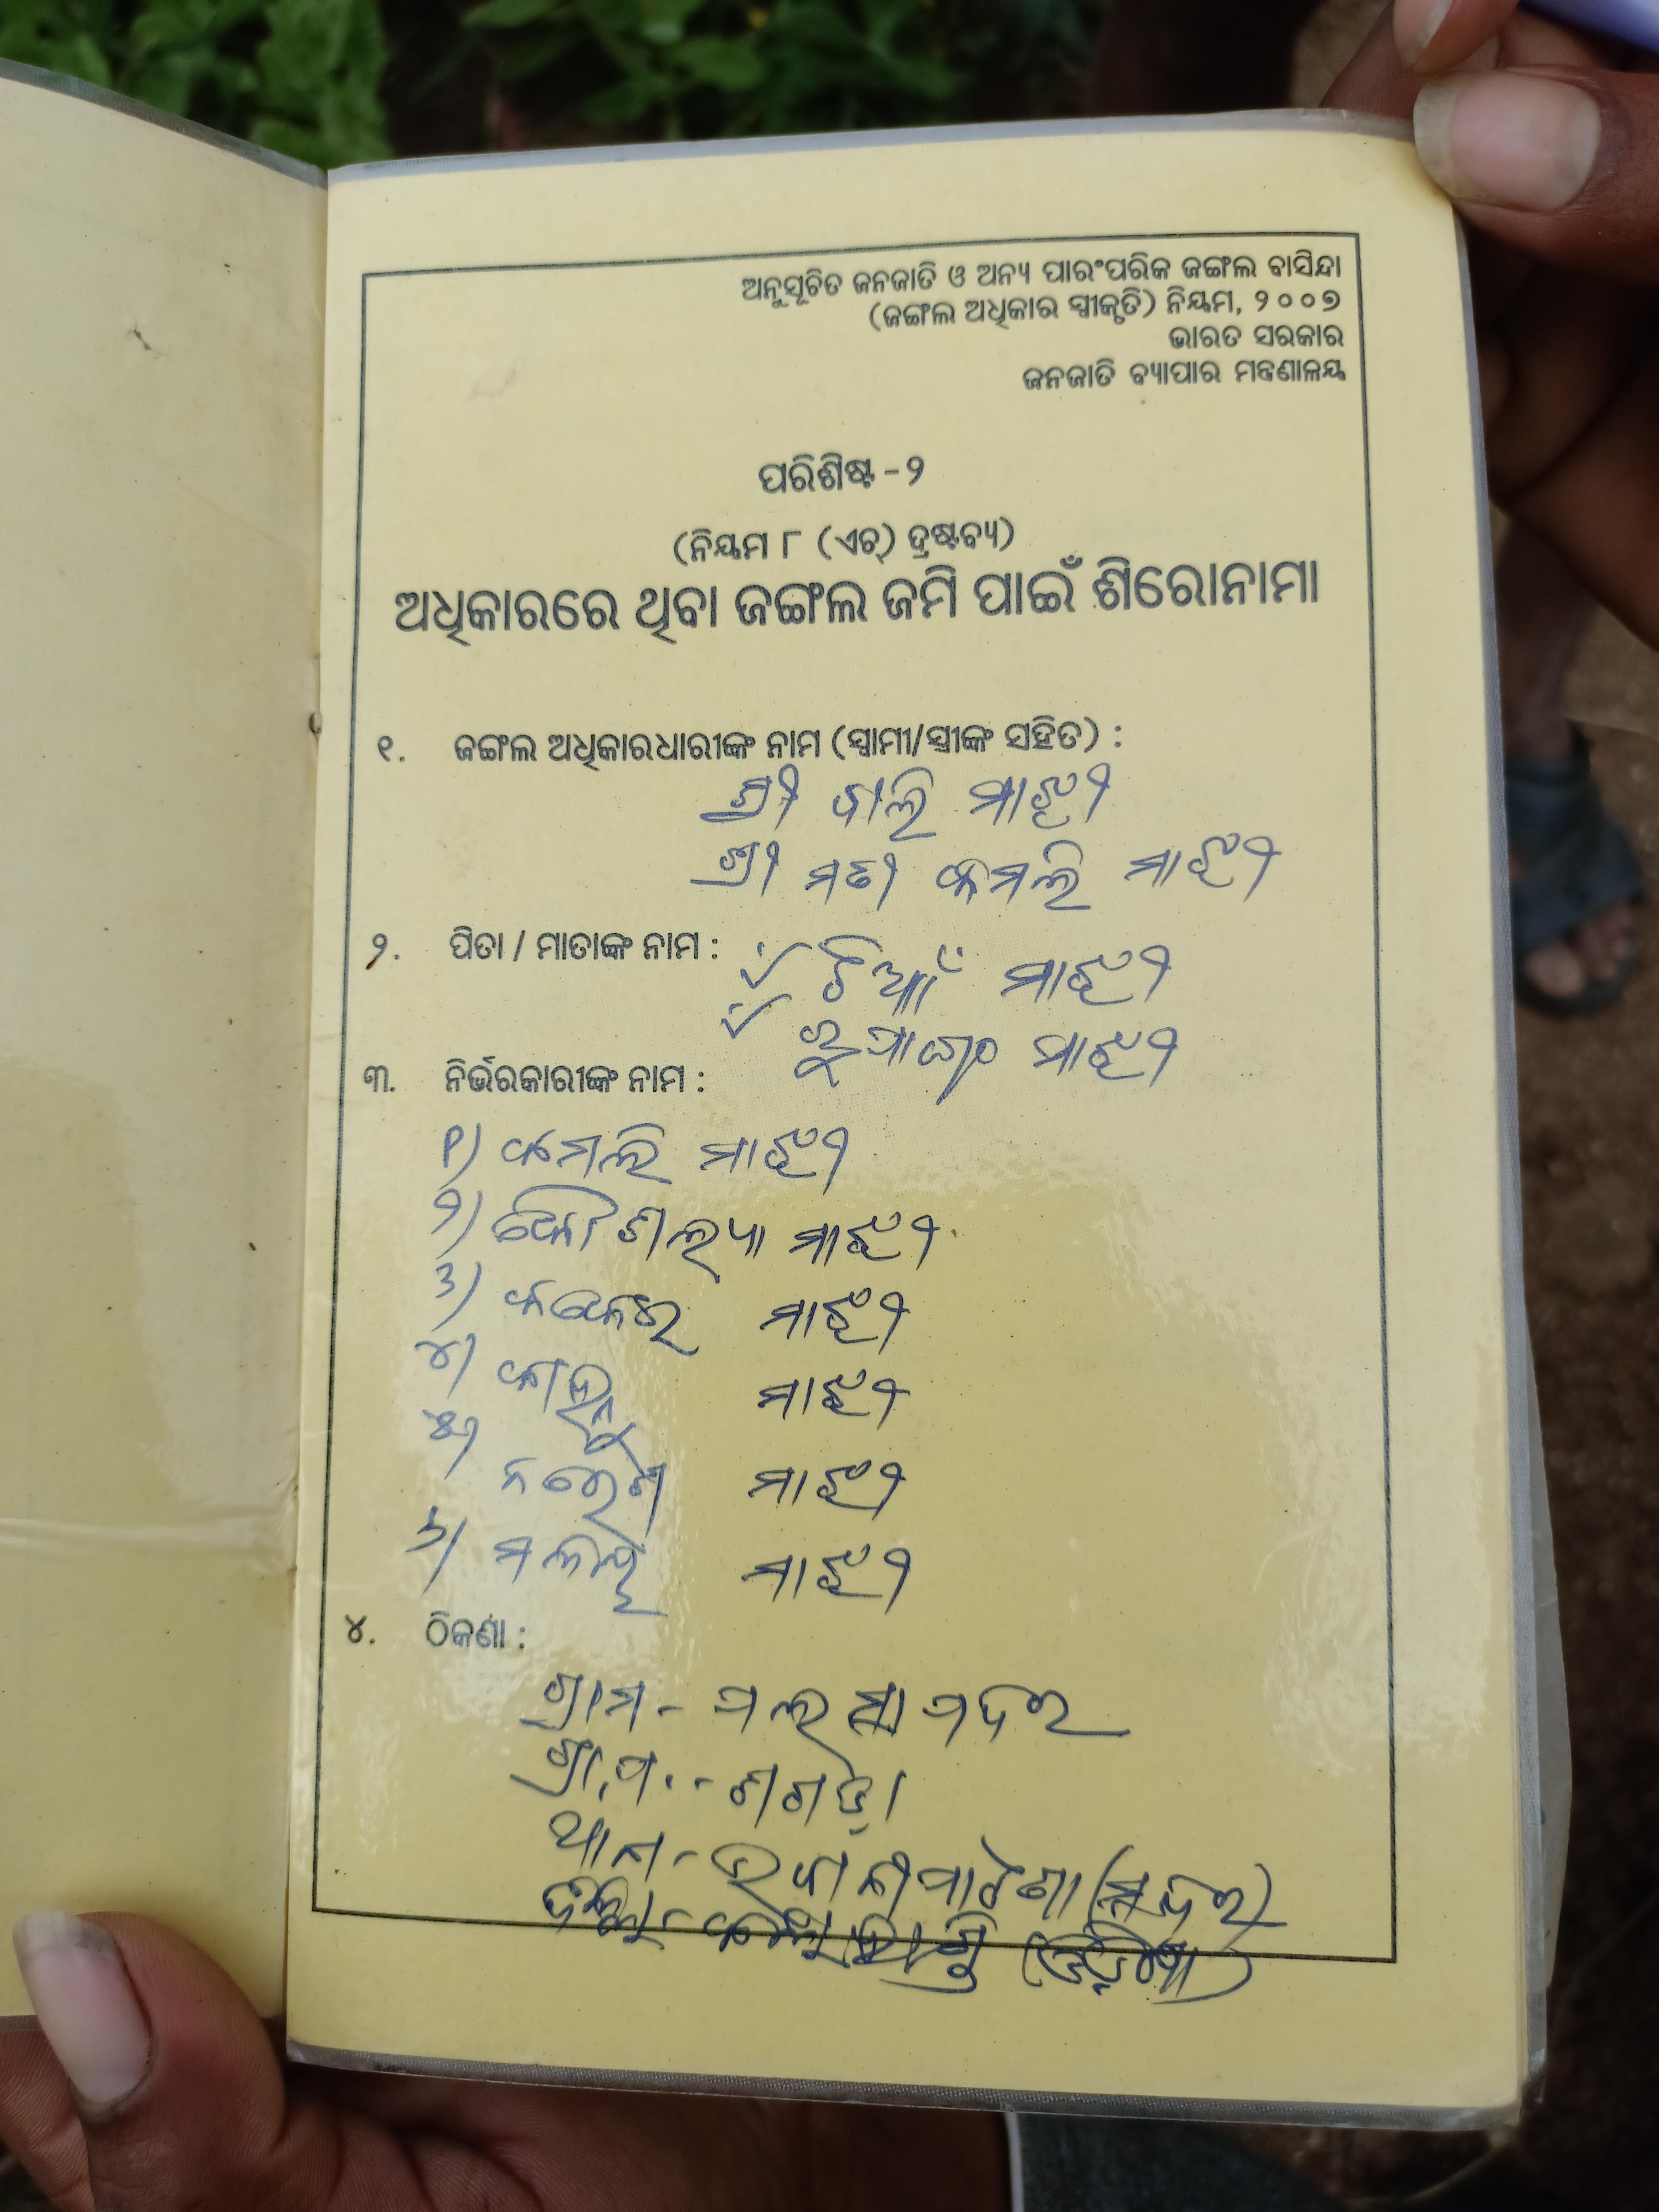 ଅନୁସୂଚିତ ଜନଜାତି ଓ ଅନ୍ୟ ପାରଂପରିକ ଜଙ୍ଗଲ ବାସିନ୍ଦା
(ଜଙ୍ଗଲ ଅଧିକାର ସ୍ୱୀକୃତି) ନିୟମ, ୨୦୦୭
ଭାରତ ସରକାର
ଜନଜାତି ବ୍ୟାପାର ମନ୍ତ୍ରଣାଳୟ
ପରିଶିଷ୍ଟ - ୨
(ନିୟମ ୮ (ଏଚ୍) ଦ୍ରଷ୍ଟବ୍ୟ)
ଅଧିକାରରେ ଥିବା ଜଙ୍ଗଲ ଜମି ପାଇଁ ଶିରୋନାମା
୧. ଜଙ୍ଗଲ ଅଧିକାରଧାରୀଙ୍କ ନାମ (ସ୍ୱାମୀ/ସ୍ତ୍ରୀଙ୍କ ସହିତ) :
ଶ୍ରୀ ମାଝୀ
ଶ୍ରୀମତୀ କମଲି ମାଝୀ
୨. ପିତା / ମାତାଙ୍କ ନାମ :
ମାଝୀ
ମାଝୀ
୩. ନିର୍ଭରକାରୀଙ୍କ ନାମ :
୧) କମଲି ମାଝୀ
୨) କୌଶଲ୍ୟା ମାଝୀ
୩) ମାଝୀ
୪) ମାଝୀ
୫) ନରେଶ ମାଝୀ
୬) ମାଝୀ
୪. ଠିକଣା :
ଗ୍ରାମ -
ଗ୍ରା.ପ. -
ଥାନା - ଭବାନୀପାଟଣା (ସଦର)
ଜିଲ୍ଲା - କଳାହାଣ୍ଡି (ଓଡ଼ିଶା)